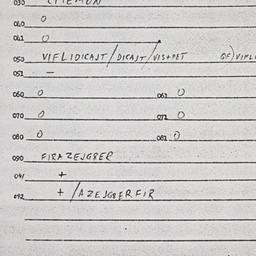 030
040 0
041 0
050 VIFLIDICAST/DICAST/VIS+PET
051 —
060 0 061 0
070 0 071 0
080 0 081 0
090 FIRAZEJGBER
091 +
092 + /AZEJGBERFIR